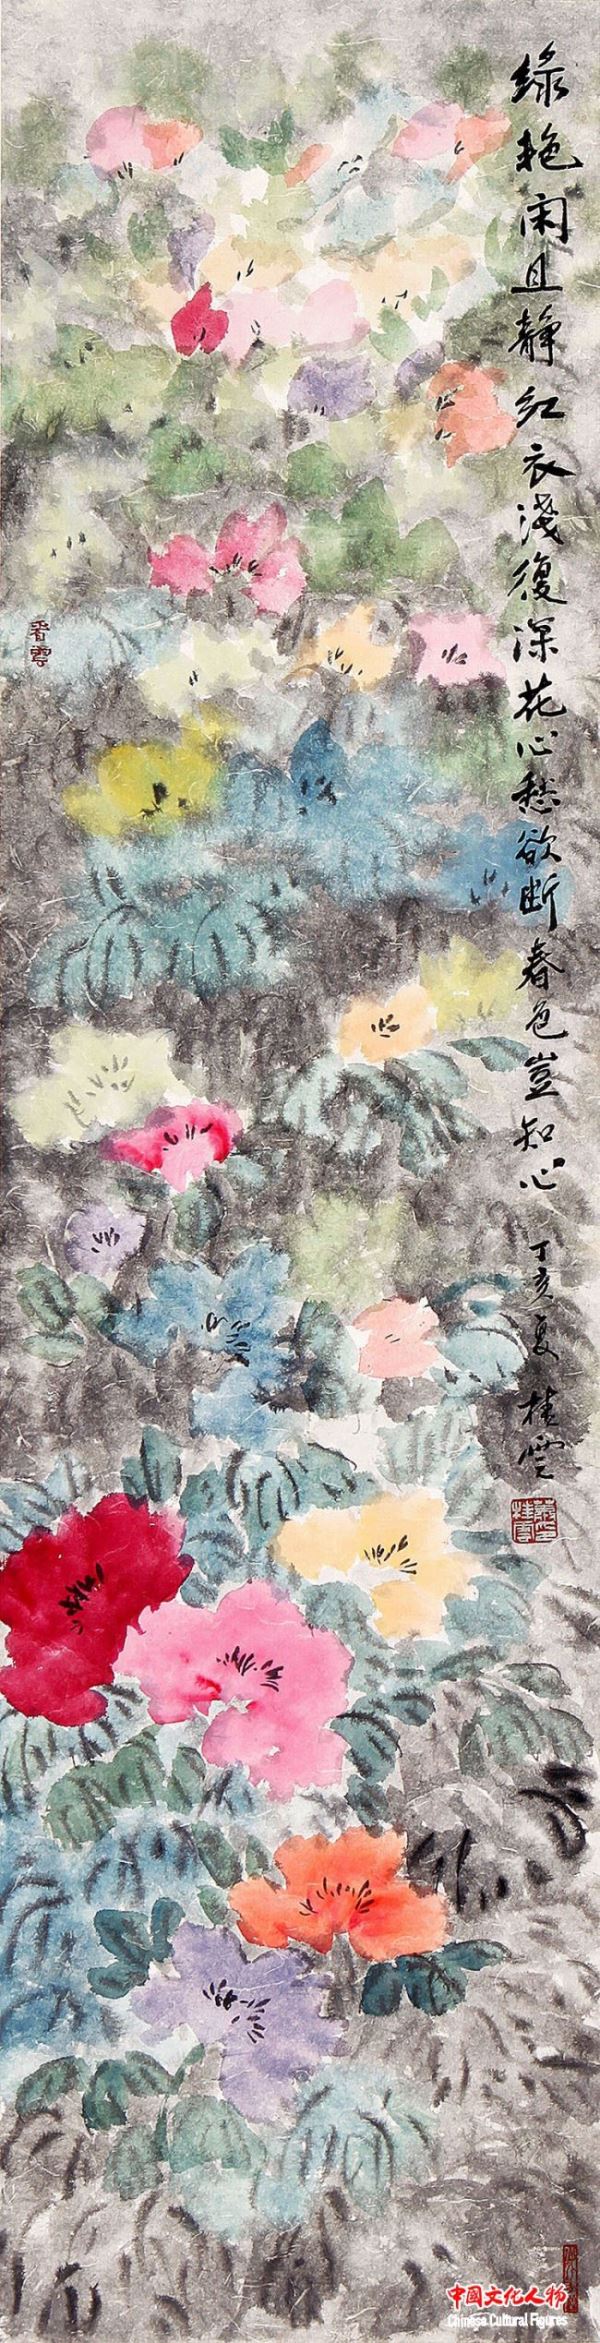 綠艳闲且静红衣淺復深花心愁欲断春色豈知心
丁亥夏 桂雲
看雲
中國文化人物
Chinese Cultural Figures